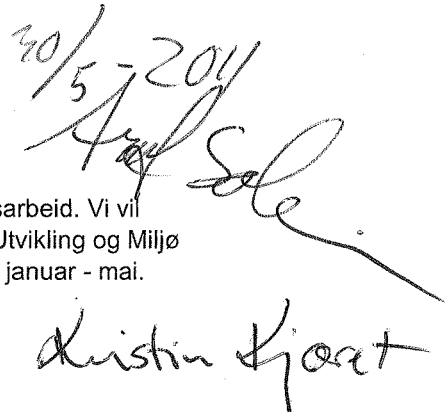 30/5-2011
sarbeid. Vi vil
Utvikling og Miljø
januar - mai.
Kristin Kjæret